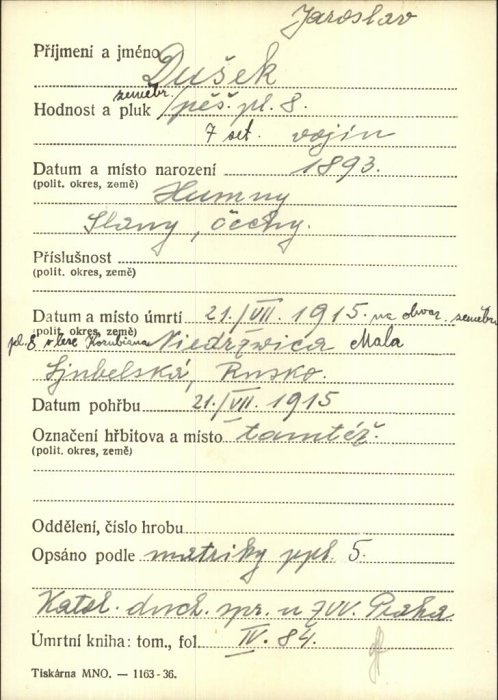 Jaroslav
Příjmení a jméno Dušek
zeměbr.
Hodnost a pluk pěš. pl. 8.
7 set. vojín
Datum a místo narození 1893.
(polit. okres, země) Humny
Slany, Čechy.
Příslušnost
(polit. okres, země)
Datum a místo úmrtí 21./VII. 1915 na obvaz. zeměbr.
(polit. okres, země)
pl. 8 v lese Niedrzwica Mala
Ljubelská, Rusko.
Datum pohřbu 21./VII. 1915
Označení hřbitova a místo tamtéž.
(polit. okres, země)
Oddělení, číslo hrobu
Opsáno podle matriky ppl. 5.
Katol. duch. spr. u ZVV. Praha
Úmrtní kniha: tom., fol. IV. 84.
Tiskárna MNO. — 1163-36.